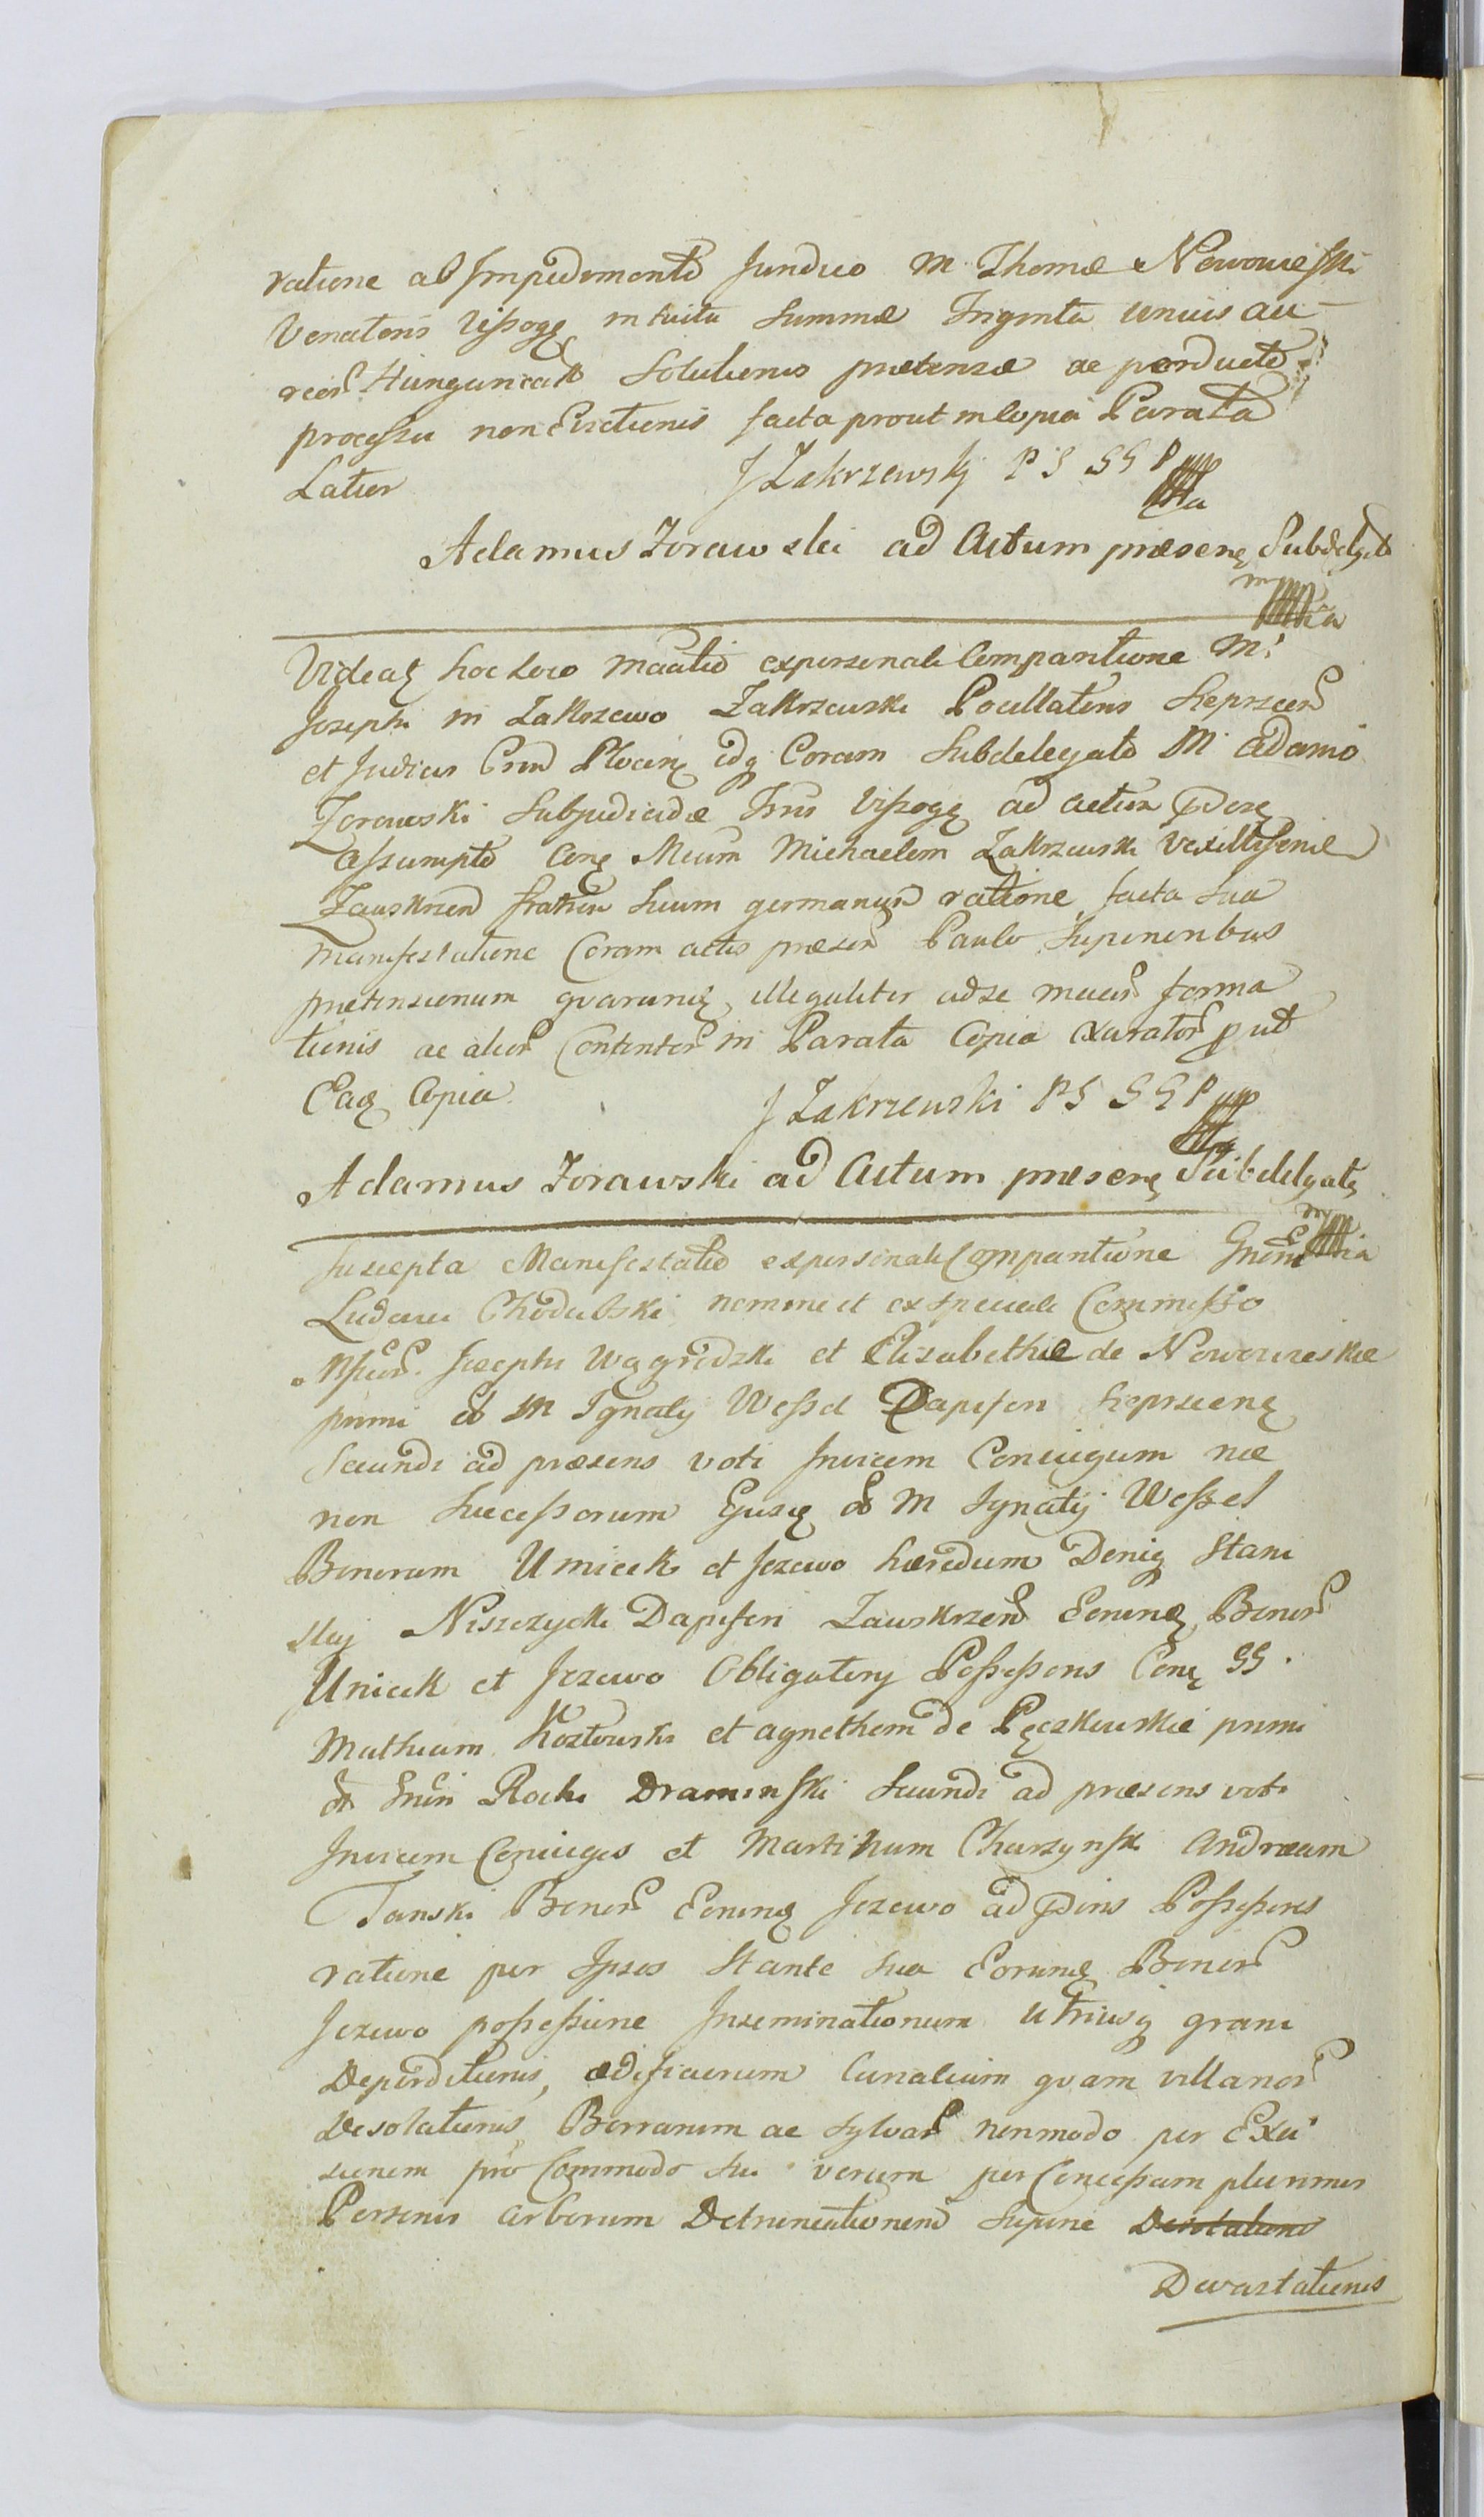 ratione ab Impedimento Juridico M Thomæ Nowowieski
Venatoris Vissogę intuitu Summæ Triginta unius au-
reor Hungaricak Solutionis prætensæ ac perducto
processu non Evictionis facta prout in Copia Parata
Latior
J Zakrzewskj P S S G P
Adamus Zorawski ad Actum præsenę Subdelgat
mpria
Videatę hoc Loco Maatio ex personali Comparitione M:
Josephi in Zakrzewo Zakrzewski Pocillatoris Sieprzcen
et Judicis Crnd Plocenę idq Coram Subdelegato M Adamo
Zorawski Subjudicidæ Trris Vissogę ad Actum
Assumpto Conę Mcum Michaelem Zakrzewski Vexilliferid
Zauskrzen fratrem Suum germanum ratione facta sua
Manifestatione Coram actis præsen Paulo Superioribus
prætensionum quarumę illegaliter ad se mcus forma
tionis ac alior Contentor in Parata Copia exarator put
Eadę Copia
J Zakrzewski P S S G P
Adamus Zorawski ad Actum præsenę Subdelgatę
mpria
Suscepta Manifestatio ex personali Comparitione Gnensi
Ludovici Chodubski nomine et ex speciali Commisso
Mficor Josephi Wągrodzki et Elisabethæ de Nowowieskie
primi M Ignatij Wessel Dapiferi Sieprzcenę
Secundi ad præsens voti Invicem Coniugum nec
non Successorum Ejusdę M Ignatij Wessel
Bonorum Umieck et Jezewo hæredum Denię Stani
slaj Niszczycki Dapiferi Zawskrzen Eorundę Bonor
Unieck et Jezewo Obligatorij Possessoris Conę GG.
Mathiam Kozłowski et agnethem de Pęczkowskie primi
Gnen Rochi Draminski Secundi ad præsens voti
Invicem Coniuges et Martinum Charzynski Andream
Tanski Bonor Eorundę Jezewo ad pdens Possessores
ratione per Ipsos Stante sua Eorundę Bonor
Jezewo possessione Inseminationum utriusq grani
Deperditionis, ædificiorum Curialium quam villanor
Desolationis, Borrarum ac Sylvar non modo per Exci
sionem pro Commodo sui verum per Concessam plurimis
Personis arborum Detruncationem Supine Desolationis
Devastationis